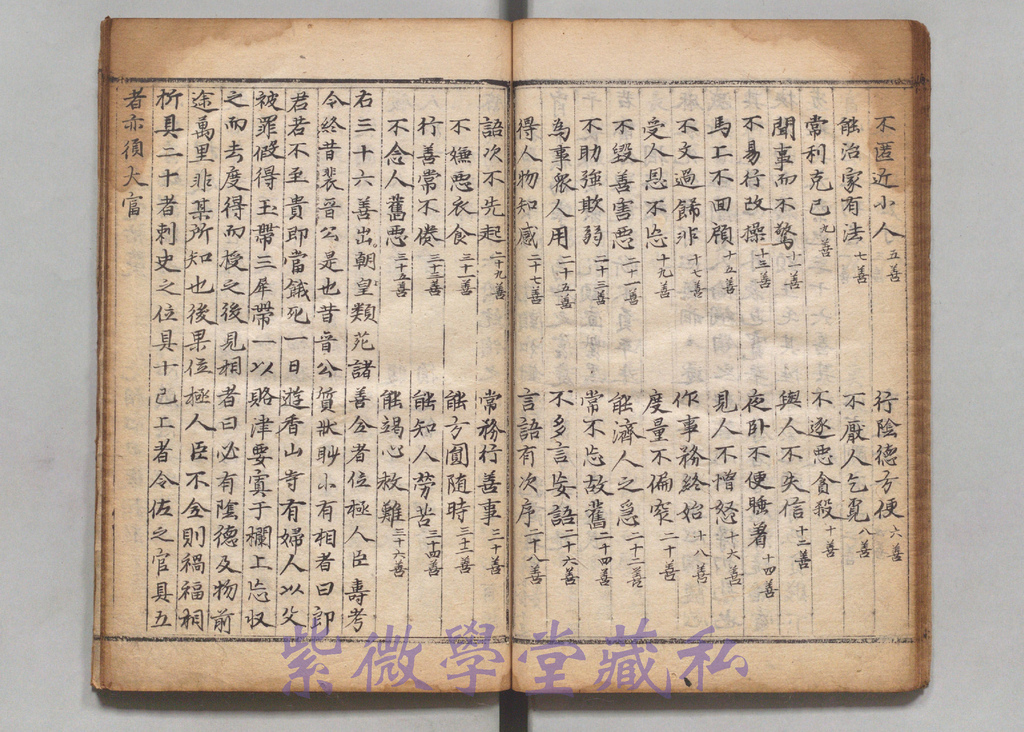 不匿近小人五善　行陰德方便六善
能治家有法七善　不厭人乞覓八善
常利克己九善　不逐惡貪殺十善
聞事而不驚十一善　與人不失信十二善
不易行改操十三善　夜卧不便睡着十四善
馬上不回顧十五善　見人不憎怒十六善
不文過餙非十七善　作事務終始十八善
受人恩不忘十九善　度量不偏窄二十善
不毀善害惡二十一善　能濟人之急二十二善
不助強欺弱二十三善　常不忘故舊二十四善
為事衆人用二十五善　不多言妄語二十六善
得人物知感二十七善　言語有次序二十八善
語次不先起二十九善　常務行善事三十善
不嫌惡衣食三十一善　能方圓随時三十二善
行善常不倦三十三善　能知人勞苦三十四善
不念人舊惡三十五善　能竭心救難三十六善
右三十六善出朝皇類苑諸善全者位極人臣壽考
令終昔裴晉公是也昔晋公質狀眇小有相者曰郎
君若不至貴即當餓死一日遊香山寺有婦人以父
被罪假得玉帶三犀帶一以賂津要寘于欄上忘収
之而去度得而授之後見相者曰必有陰德及物前
途萬里非某所知也後果位極人臣不全則禍福相
折具二十者刺史之位具十已上者令佐之官具五
者亦須大富
紫微學堂藏私